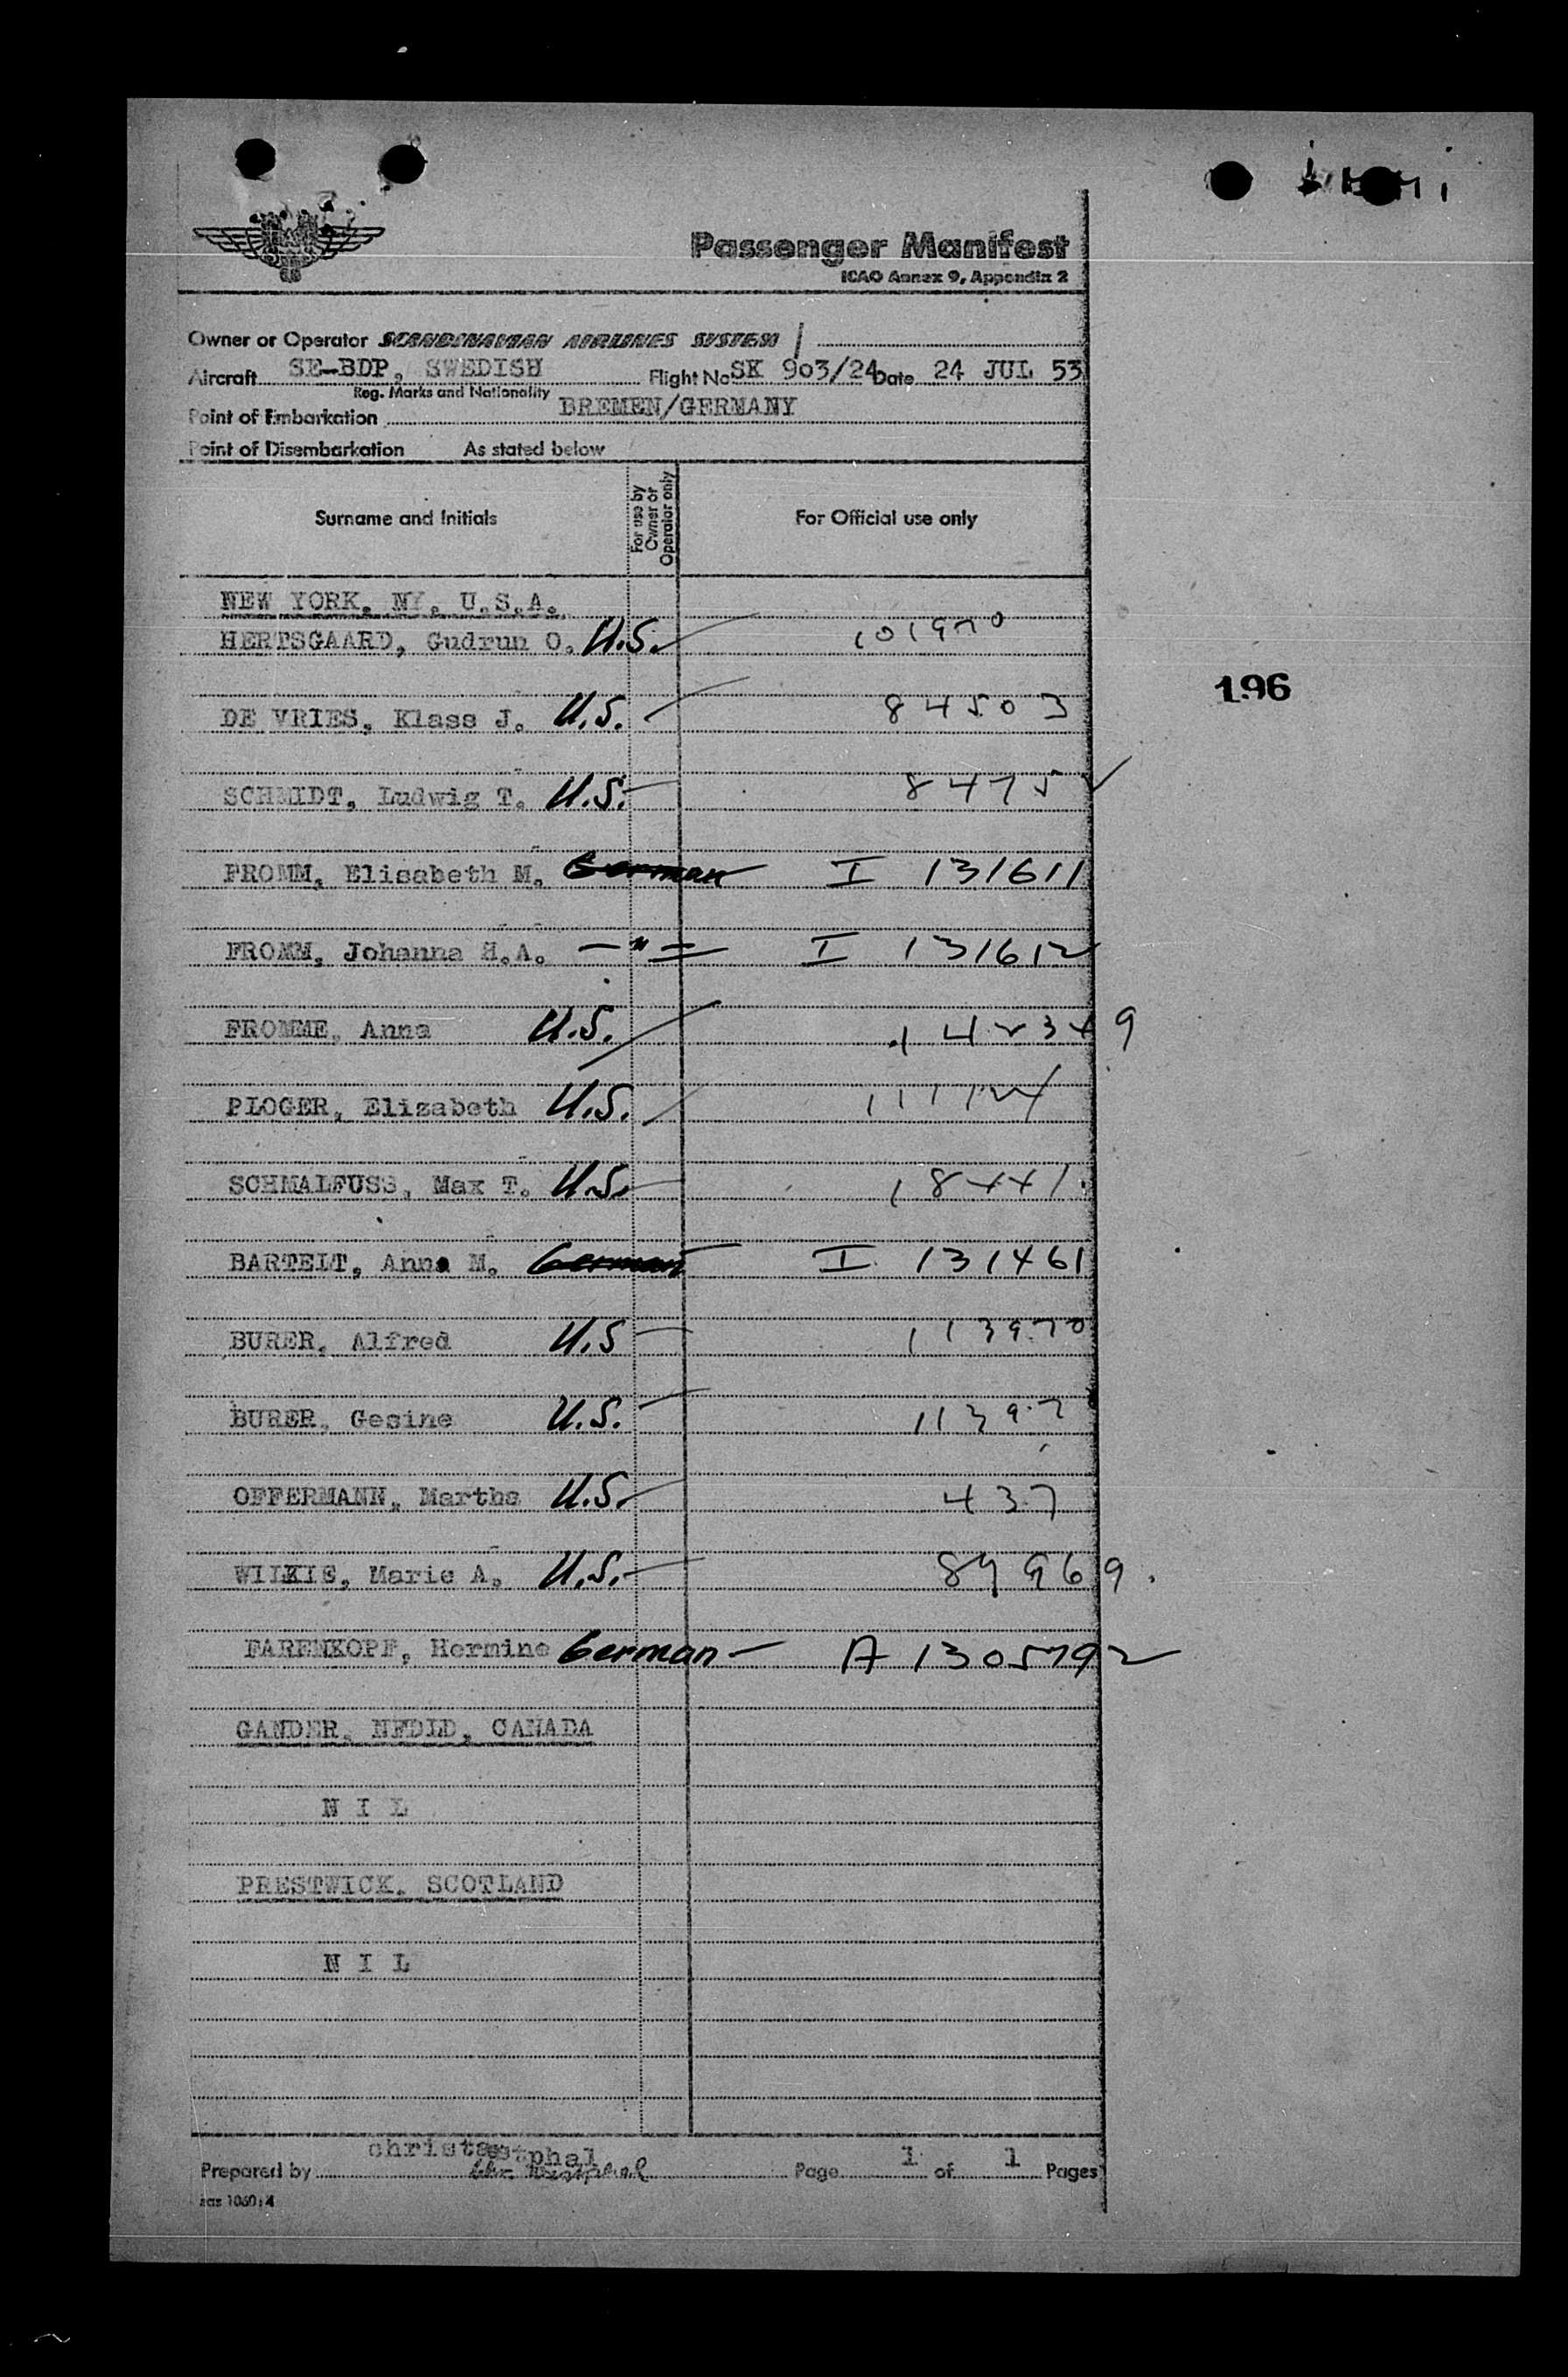 Passenger Manifest
ICAO Annex 9, Appendix 2
Owner or Operator SCANDINAVIAN AIRLINES SYSTEM
Aircraft SE-BDP, SWEDISH Flight No SK 903/24 Date 24 JUL 53
Reg. Marks and Nationality
Point of Embarkation BREMEN/GERMANY
Point of Disembarkation As stated below
Surname and Initials For use by Owner or Operator only For Official use only
NEW YORK, NY, U.S.A.
HERTSGAARD, Gudrun O. U.S. 101970
196
DE VRIES, Klass J. U.S. 84503
SCHMIDT, Ludwig T. U.S. 8475
FROMM, Elisabeth M. German I 131611
FROMM, Johanna H.A. —"— I 131612
FROMME, Anna U.S. 142349
PLOGER, Elizabeth U.S.
SCHMALFUSS, Max T. U.S. 18441
BARTELT, Anna M. German I 131461
BURER, Alfred U.S 113970
BURER, Gesine U.S. 11397
OFFERMANN, Martha U.S. 437
WILKIE, Marie A. U.S.
FARENKOPF, Hermine German A 1305792
GANDER, NFDLD, CANADA
N I L
PRESTWICK, SCOTLAND
N I L
christa westphal
Prepared by Chr. Westphal Page 1 of 1 Pages
sas 1060:4